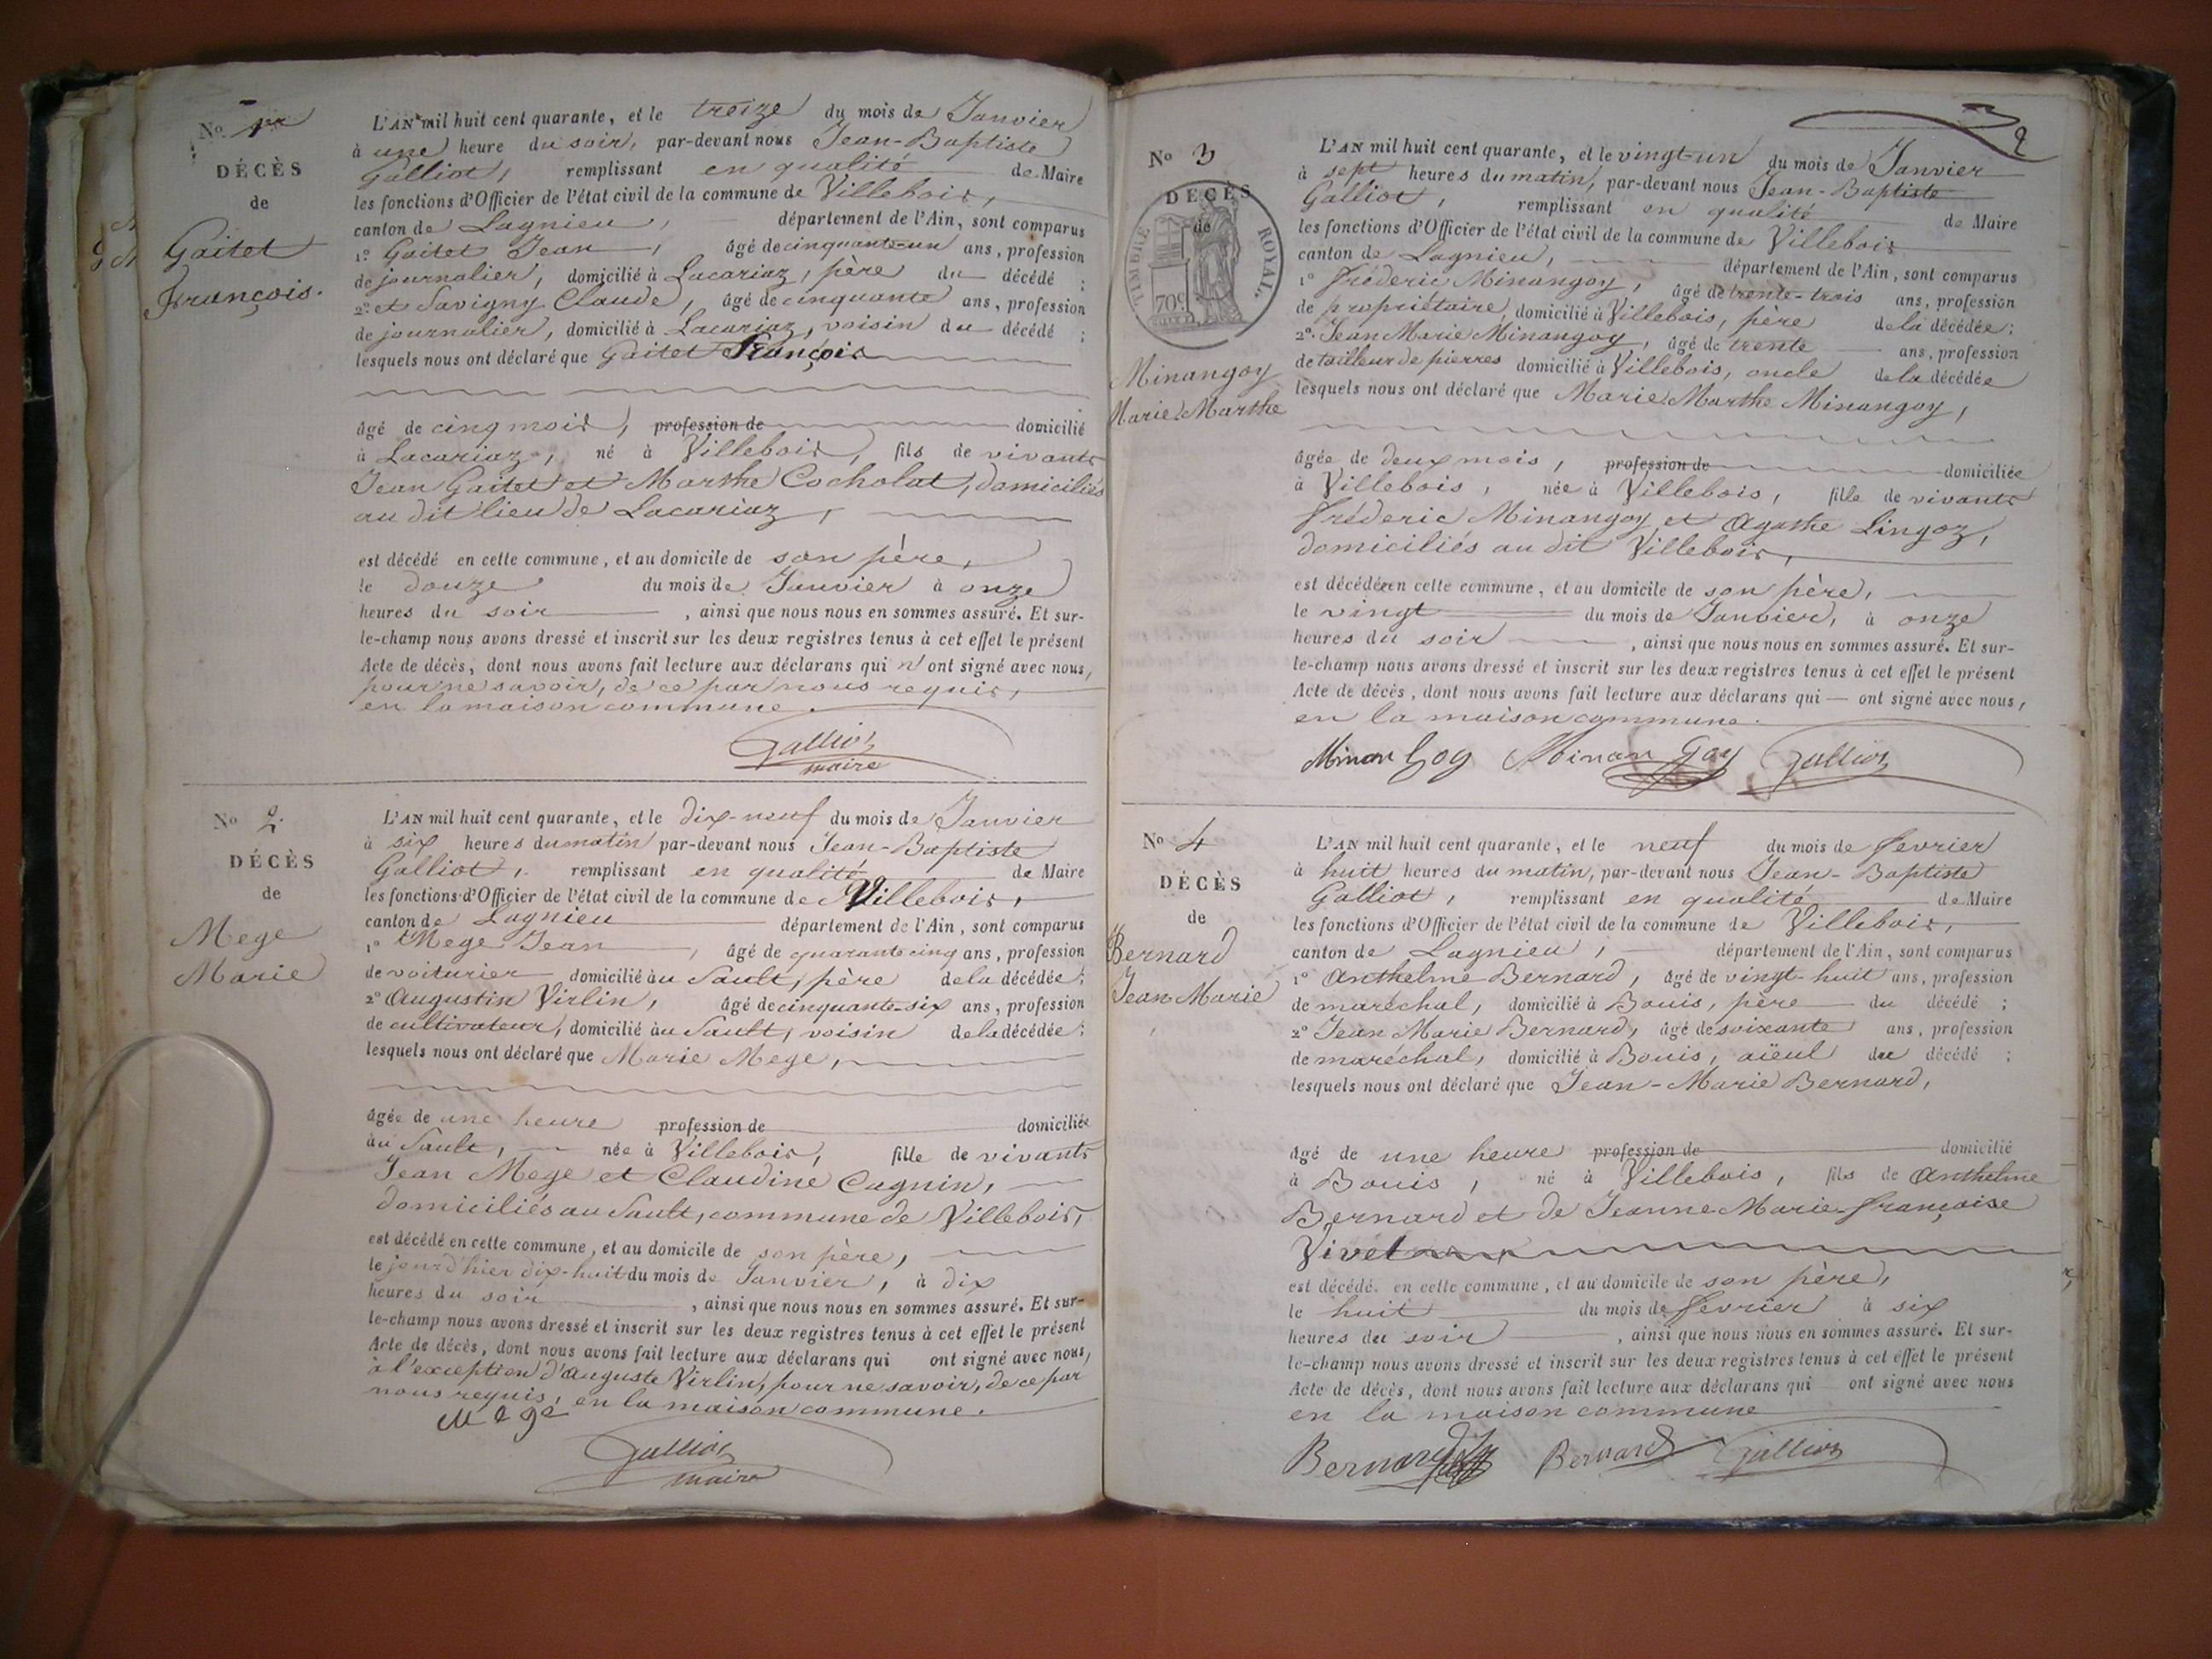 No 1er
DÉCÈS
de
Gaitet
François.
L'AN mil huit cent quarante, et le treize du mois de Janvier
à une heure du soir, par-devant nous Jean-Baptiste
Galliot, remplissant en qualité de Maire
les fonctions d'Officier de l'état civil de la commune de Villebois,
canton de Lagnieu, département de l'Ain, sont comparus
1º Gaitet Jean, âgé de cinquante-un ans, profession
de journalier, domicilié à Lacariaz, père du décédé ;
2º et Savigny Claude, âgé de cinquante ans, profession
de journalier, domicilié à Lacariaz, voisin du décédé ;
lesquels nous ont déclaré que Gaitet François
âgé de cinq mois, profession de domicilié
à Lacariaz, né à Villebois, fils de vivants
Jean Gaitet et Marthe Cocholat, domiciliés
au dit lieu de Lacariaz,
est décédé en cette commune, et au domicile de son père,
le douze du mois de Janvier à onze
heures du soir, ainsi que nous nous en sommes assuré. Et sur-
le-champ nous avons dressé et inscrit sur les deux registres tenus à cet effet le présent
Acte de décès, dont nous avons fait lecture aux déclarans qui n'ont signé avec nous,
pour ne savoir, de ce par nous requis,
en la maison commune.
Galliot
maire
No 2.
DÉCÈS
de
Mege
Marie
L'AN mil huit cent quarante, et le dix-neuf du mois de Janvier
à six heures du matin par-devant nous Jean-Baptiste
Galliot, remplissant en qualité de Maire
les fonctions d'Officier de l'état civil de la commune de Villebois,
canton de Lagnieu département de l'Ain, sont comparus
1º Mege Jean, âgé de quarante cinq ans, profession
de voiturier domicilié au Sault, père de la décédée ;
2º Augustin Virlin, âgé de cinquante-six ans, profession
de cultivateur, domicilié au Sault, voisin de la décédée ;
lesquels nous ont déclaré que Marie Mege,
âgée de une heure profession de domiciliée
au Sault, née à Villebois, fille de vivants
Jean Mege et Claudine Cagnin,
domiciliés au Sault, commune de Villebois,
est décédé en cette commune, et au domicile de son père,
le jour d'hier dix-huit du mois de Janvier, à dix
heures du soir, ainsi que nous nous en sommes assuré. Et sur-
le-champ nous avons dressé et inscrit sur les deux registres tenus à cet effet le présent
Acte de décès, dont nous avons fait lecture aux déclarans qui ont signé avec nous,
à l'exception d'Auguste Virlin, pour ne savoir, de ce par
nous requis, en la maison commune.
Mege
Galliot
maire
2
No 3
DÉCÈS
de
TIMBRE ROYAL
70c
Minangoy
Marie Marthe
L'AN mil huit cent quarante, et le vingt-un du mois de Janvier
à sept heures du matin, par-devant nous Jean-Baptiste
Galliot, remplissant en qualité de Maire
les fonctions d'Officier de l'état civil de la commune de Villebois
canton de Lagnieu, département de l'Ain, sont comparus
1º Fréderic Minangoy, âgé de trente-trois ans, profession
de propriétaire, domicilié à Villebois, père de la décédée ;
2º Jean Marie Minangoy, âgé de trente ans, profession
de tailleur de pierres domicilié à Villebois, oncle de la décédée
lesquels nous ont déclaré que Marie Marthe Minangoy,
âgée de deux mois, profession de domiciliée
à Villebois, née à Villebois, fille de vivants
Fréderic Minangoy et Agathe Lingoz,
domiciliés au dit Villebois,
est décédée en cette commune, et au domicile de son père,
le vingt du mois de Janvier, à onze
heures du soir, ainsi que nous nous en sommes assuré. Et sur-
le-champ nous avons dressé et inscrit sur les deux registres tenus à cet effet le présent
Acte de décès, dont nous avons fait lecture aux déclarans qui — ont signé avec nous,
en la maison commune.
Minan Goy Minan Goy Galliot
No 4
DÉCÈS
de
Bernard
Jean Marie
L'AN mil huit cent quarante, et le neuf du mois de Fevrier
à huit heures du matin, par-devant nous Jean-Baptiste
Galliot, remplissant en qualité de Maire
les fonctions d'Officier de l'état civil de la commune de Villebois,
canton de Lagnieu, département de l'Ain, sont comparus
1º Anthelme Bernard, âgé de vingt-huit ans, profession
de maréchal, domicilié à Bouis, père du décédé ;
2º Jean Marie Bernard, âgé de soixante ans, profession
de maréchal, domicilié à Bouis, aïeul du décédé ;
lesquels nous ont déclaré que Jean-Marie Bernard,
âgé de une heure profession de domicilié
à Bouis, né à Villebois, fils de Anthelme
Bernard et de Jeanne-Marie-Françoise
Vivet
est décédé en cette commune, et au domicile de son père,
le huit du mois de Fevrier à six
heures du soir, ainsi que nous nous en sommes assuré. Et sur-
le-champ nous avons dressé et inscrit sur les deux registres tenus à cet effet le présent
Acte de décès, dont nous avons fait lecture aux déclarans qui ont signé avec nous
en la maison commune
Bernard Bernard Galliot